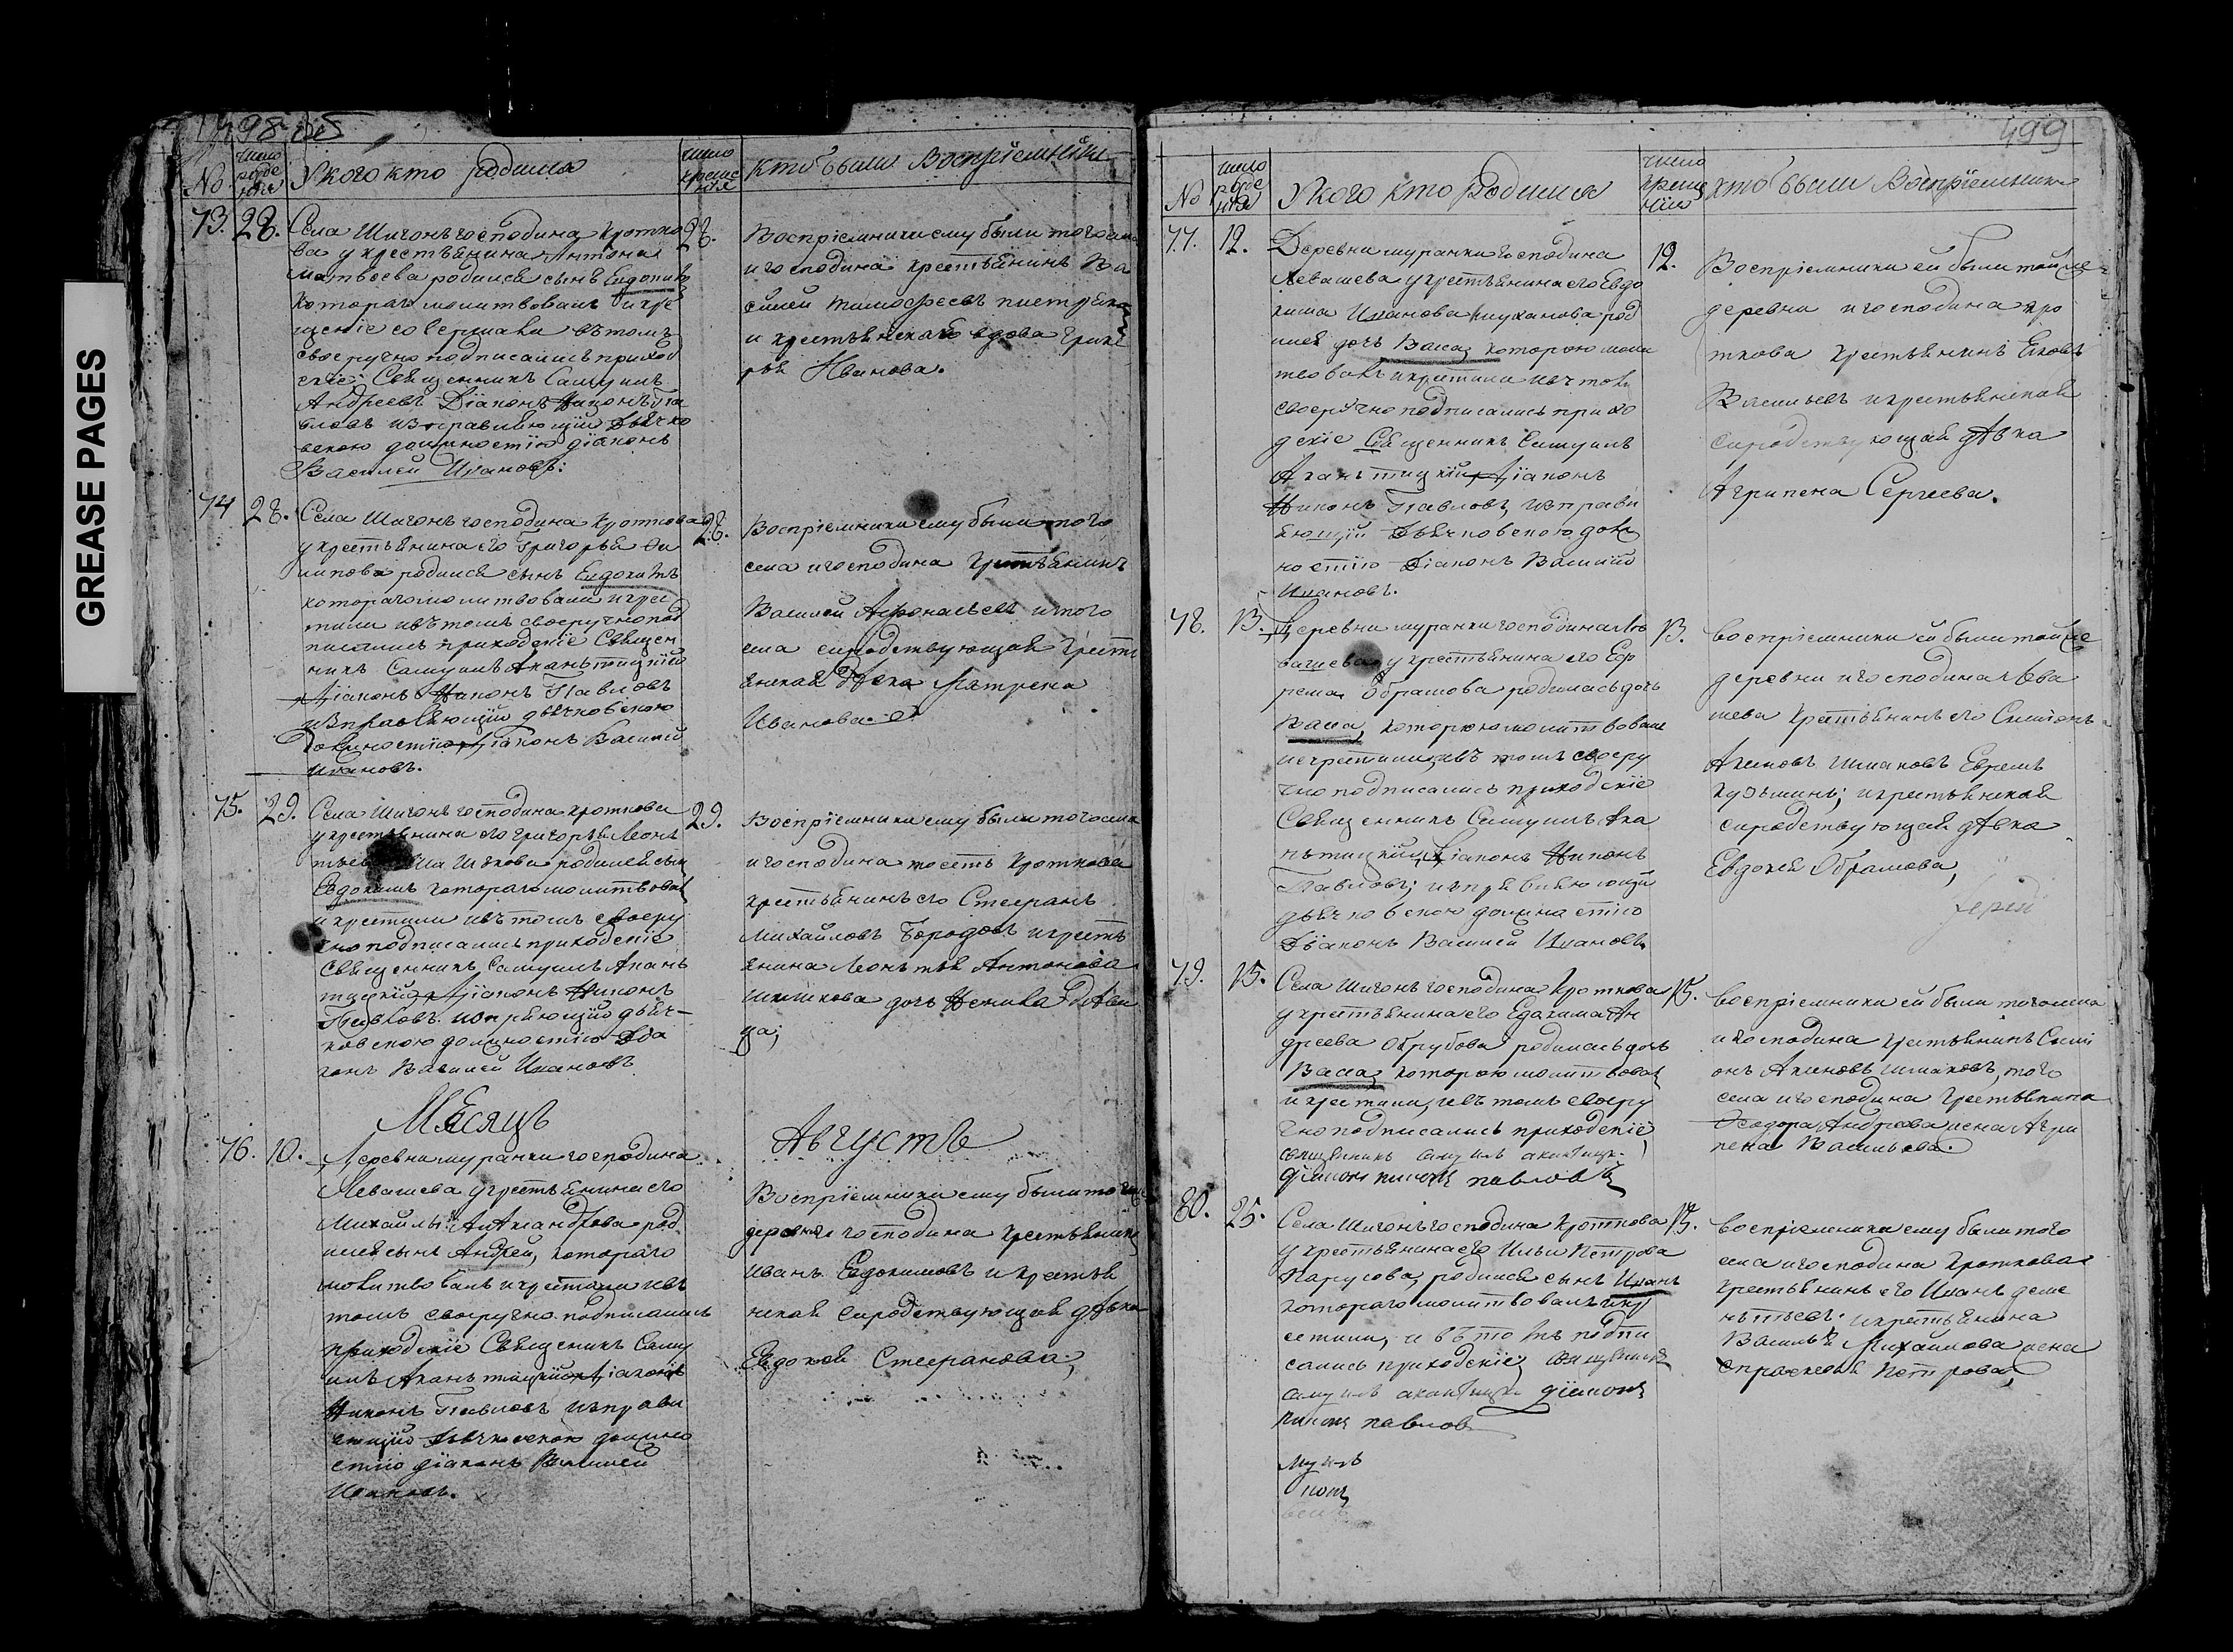 GREASE PAGES
498
No
число рожде нія
У кого кто родился
число креще нія
Кто были Воспріемники
73. 28.
Села Шигонъ господина Кротко
ва у крестьянина Антона
Матвеева родился сынъ Евдокимъ
котораго молитвовалъ и кре
щеніе совершали въ томъ
своеручно подписались приход
скіе Священникъ Самуилъ
Андреевъ Діаконъ Никонъ Па
вловъ исправляющій дьячко
вскою должностію діаконъ
Василей Ивановъ.
28.
Воспріемники ему были того села
и господина крестьянинъ Ва
силей Тимофеевъ
и крестьянская вдова
Иванова.
74 28.
Села Шигонъ господина Кроткова
у крестьянина его Григорья Фи
липова родился сынъ Евдокимъ
котораго молитвовали и крес
тили и въ томъ своеручно под
писались приходскіе Священ
никъ Самуилъ Акантицкій
Діаконъ Никонъ Павловъ
исправляющій дьячковскою
должностію Діаконъ Василей
Ивановъ.
28.
Воспріемники ему были того
села и господина крестьянинъ
Василей Афонасьевъ и того
села сиродствующая кресть
янская девка Матрена
Иванова
75. 29.
Села Шигонъ господина Кроткова
у крестьянина его Григорья Леонь
тьева Шишкова родился сынъ
Евдокимъ котораго молитвовалъ
и крестили и въ томъ своеру
чно подписались приходскіе
Священникъ Самуилъ Акань
тицкій Діаконъ Никонъ
Павловъ дьяч-
ковскою должностію Діа
конъ Василей Ивановъ
29.
Воспріемники ему были того села
и господина тоесть Кроткова
крестьянинъ его Стефанъ
Михайловъ Бородовъ и кресть
янина Леонтья Антонова
Шишкова дочь Ненила деви
ца;
Месяцъ Августъ
76. 10.
Деревни Муранки господина
Левашева у крестьянина его
Михайлы Александрова род
ился сынъ Андрей, котораго
молитвовалъ и крестили и въ
томъ своеручно подписались
приходскіе Священникъ Саму
илъ Акантицкій Діаконъ
Никонъ Павловъ исправля
ющій дьячковскою должно
стію діаконъ Василей
Ивановъ.
Воспріемники ему были той же
деревни господина крестьянинъ
Иванъ Евдокимовъ и крестья
нская сиродствующая девка
Евдокея Стефанова;
499
No
число рожде нія
У кого кто родился
число креще нія
Кто были Воспріемники
77. 12.
Деревни Муранки господина
Левашева у крестьянина его Евдо
кима Иванова Муханова род
ился дочь Васса, которою моли
твовалъ и крестили и въ томъ
своеручно подписались прихо
дскіе Священникъ Самуилъ
Акантицкій Діаконъ
Никонъ Павловъ, исправля
ющій дьячковскою долж
ностію Діаконъ Василій
Ивановъ.
12.
Воспріемники ей были той же
деревни и господина Кро
ткова крестьянинъ Яковъ
Васильевъ и крестьянская
сиродствующая девка
Агрипена Сергеева.
78. 13.
Деревни Муранки господина Ле
вашева у крестьянина его Еф
рема Обрамова родилась дочь
Васса, которою молитвовали
и крестили, и въ томъ своеру
чно подписались приходскіе
Священникъ Самуилъ Ака
нтицкій Діаконъ Никонъ
Павловъ; исправляющій
дьячковскою должностію
Діаконъ Василей Ивановъ
13.
Воспріемники ей были той же
деревни и господина Лева
шева крестьянинъ его Симіонъ
Акимовъ Ефремъ
Кузьминъ; и крестьянская
сиродствующая девка
Евдокея Обрамова,
79. 15.
Села Шигонъ господина Кроткова
у крестьянина его Евдокима Ан
дреева Обрубова родилась дочь
Васса, которою молитвовалъ
и крестили, и въ томъ своеру
чно подписались приходскіе
священникъ Самуилъ Акантицк.
діаконъ никонъ павловъ
15.
воспріемники ей были того села
и господина крестьянинъ Сими
онъ Акимовъ, того
села и господина крестьянина
Феодора Андреева жена Агри
пена Васильева.
80. 25.
Села Шигонъ господина Кроткова
у крестьянина его Ильи Петрова
Парусова, родился сынъ Иванъ
котораго молитвовалъ и кр
естили, и въ томъ подпи
сались приходскіе, священникъ
самуилъ акантицки діаконъ
никонъ павловъ
воспріемники ему были того
села и господина Кроткова
крестьянинъ его Иванъ деме
нтьевъ и крестьянина
Василья Михайлова жена
Параскевья Петрова,